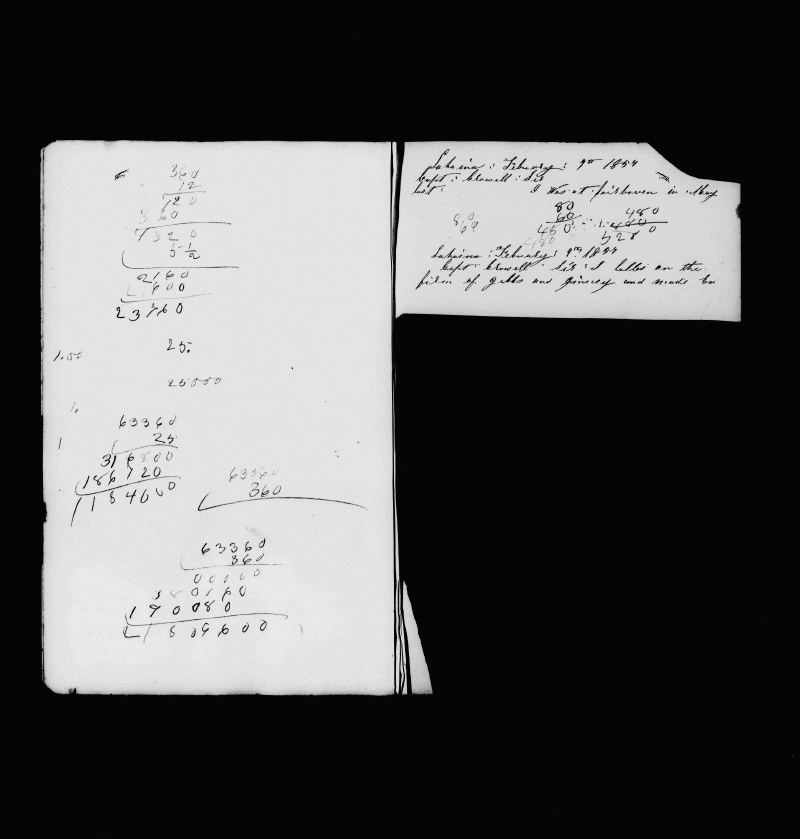 360
12
720
360
4320
5 1/2
2160
21600
23760
1.50
25.
25000
1.
63360
1
25
316800
186720
1184000
63360
360
63360
360
00000
380160
190080
21809600
Lahaina : Febuary : 9th 1854
Capt : Crowell : Sir
I Was at fairhaven in May
last
80
60
480
80
60
480
480
5280
Lahaina : Febuary : 9th 1854
Capt Crowell Sir I called on the
firm of gibbs and and made En